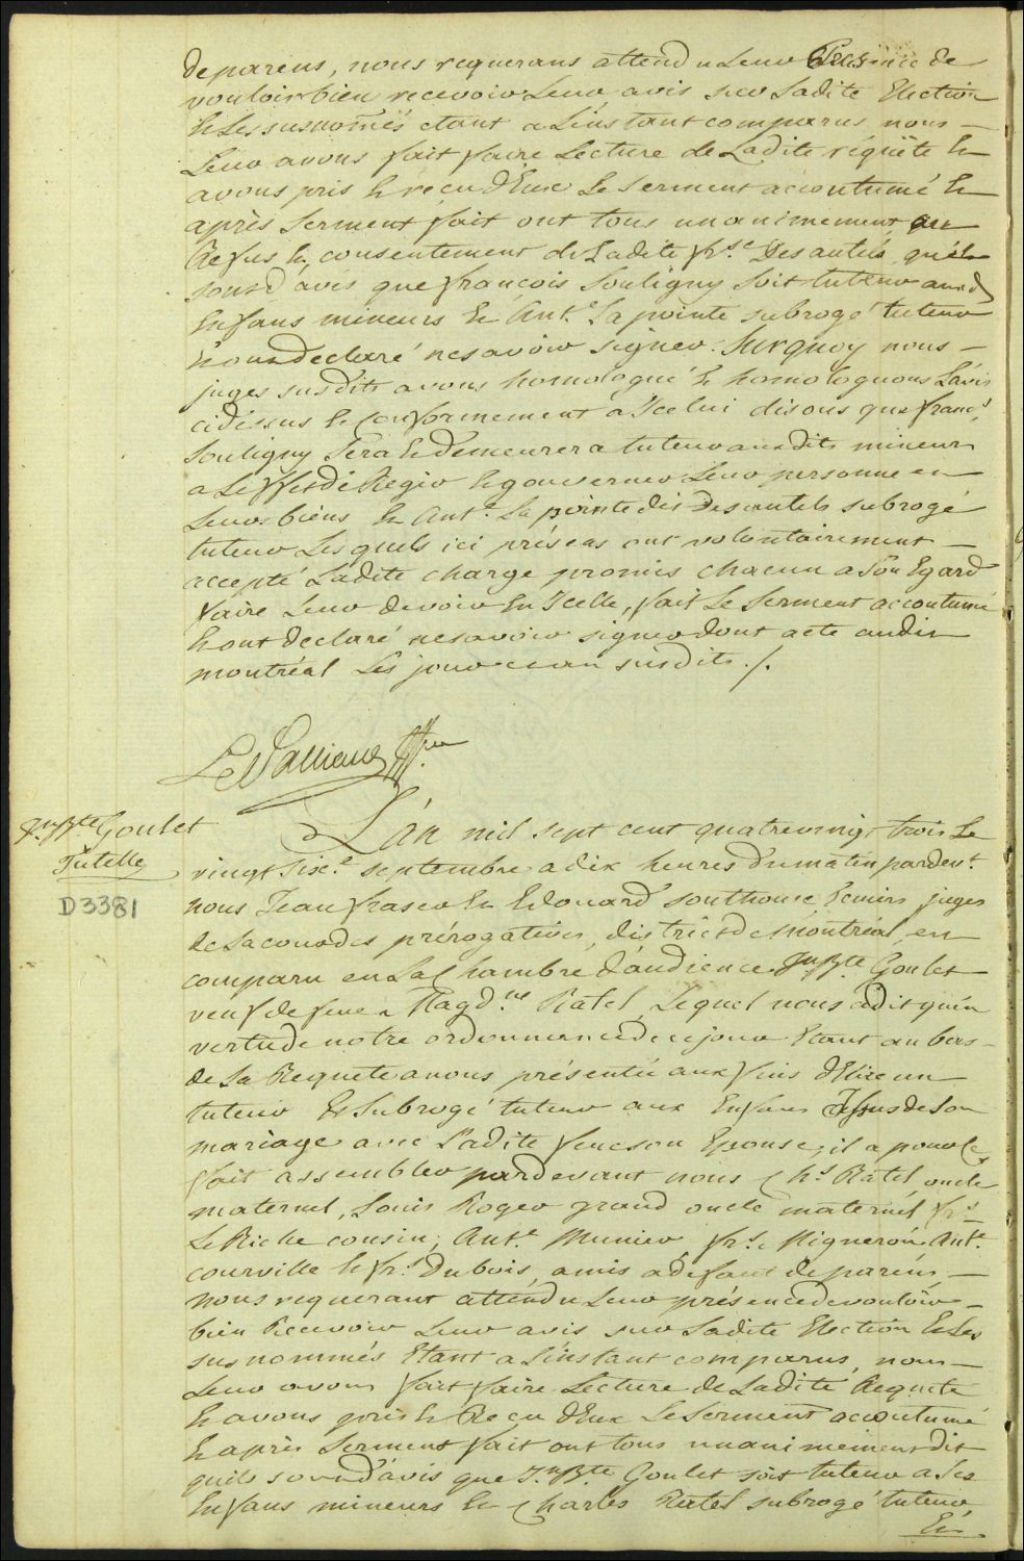 de parens, nous requerans attendu leur Présence de
vouloir bien recevoir leur avis sur Ladite Election
& Les susnomés etant a Linstant comparus nous —
Leur avons fait faire Lecture de Ladite réquête &
avons pris & reçu d'Eux Le Serment accoutumé &
après Serment fait ont tous unanimement au
Refus & consentement de Ladite frse. Desautels qu'ils
sont d'avis que françois Souligny soit tuteur auxd
Enfans mineurs & Ante. Lapointe subrogé tuteur
& ont declaré ne savoir signer. Surquoy nous —
juges susdits avons homologué & homologuons L'avis
cidessus & conformement a Icelui disons que francs.
Souligny Sera & Demeurera tuteur auxdits mineurs
a Leffet de Regir & gouverner Leur personne en
Leurs biens & Ante. La pointe dit Desautels subrogé
tuteur Lesquels ici présens ont volontairement —
accepté Ladite charge promis chacun a Son Egard
faire Leur devoir En Icelle, fait Le Serment accoutumé
& ont Declaré ne savoir signer dont acte audit
montréal Les jour & an susdits ./.
Le Pallieur Gffier
Jn Bte Goulet
Tutelle
D3381
L'an mil sept cent quatrevingt trois Le
vingt Sixe. septembre a dix heures du matin pardevt.
nous Jean fraser & Edouard Southouse Ecuiers juges
de La cour des prérogatives, district de Montréal, est
comparu en La Chambre d'audience Jn Bte. Goulet
veuf de feue Magdne. Ratel, Lequel nous a dit qu'en
vertu de notre ordonnance de ce jour Etant au bas —
de La Requete a nous présentée aux fins d'Elire un
tuteur & Subrogé tuteur aux Enfans Issus de Son
mariage avec Ladite feue son Epouse, il a pour ce
fait assembler pardevant nous Chs. Ratel, oncle
maternel, Louis Roger grand oncle maternel frs. —
Le Riche cousin, Ante. Munier, frs. Migneron, Ante.
courville & frs. Dubois, amis a defaut de parens —
nous requerant attendu Leur présence de vouloir —
bien Recevoir Leur avis sur Ladite Election & Les
sus nommés Etant a Linstant comparus, nous —
Leur avons fait faire Lecture de Ladite Requete
& avons pris & Reçu d'Eux Le Serment accoutumé
& après Serment fait ont tous unanimement dit
quils sont d'avis que Jn Bte Goulet soit tuteur a Ses
Enfans mineurs & Charles Ratel subrogé tuteur,
Et